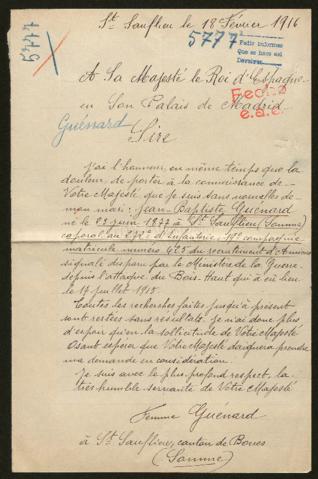 St Sauflieu le 18 Février 1916
5777
5777
Pedir informes
Que se hace eso
Devolver
A Sa Majesté le Roi d'Espagne
en Son Palais de Madrid
Fecho
Guénard
Sire
J'ai l'honneur, en même temps que la
douleur, de porter à la connaissance de
Votre Majesté que je suis sans nouvelles de
mon mari : Jean-Baptiste Guénard
né le 23 juin 1877 à St Sauflieu (Somme)
caporal au d'Infanterie, 19e compagnie
matricule numéro 623 du recrutement d'Amiens
signalé disparu par le Ministère de la Guerre
depuis l'attaque du Bois-Haut qui a eu lieu
le 14 juillet 1915.
Toutes les recherches faites jusqu'à présent
sont restées sans résultats, je n'ai donc plus
d'espoir qu'en la sollicitude de Votre Majesté
Osant espérer que Votre Majesté daignera prendre
ma demande en considération
Je suis avec le plus profond respect, la
très humble servante de Votre Majesté
Femme Guénard
à St Sauflieu, canton de Boves
(Somme)